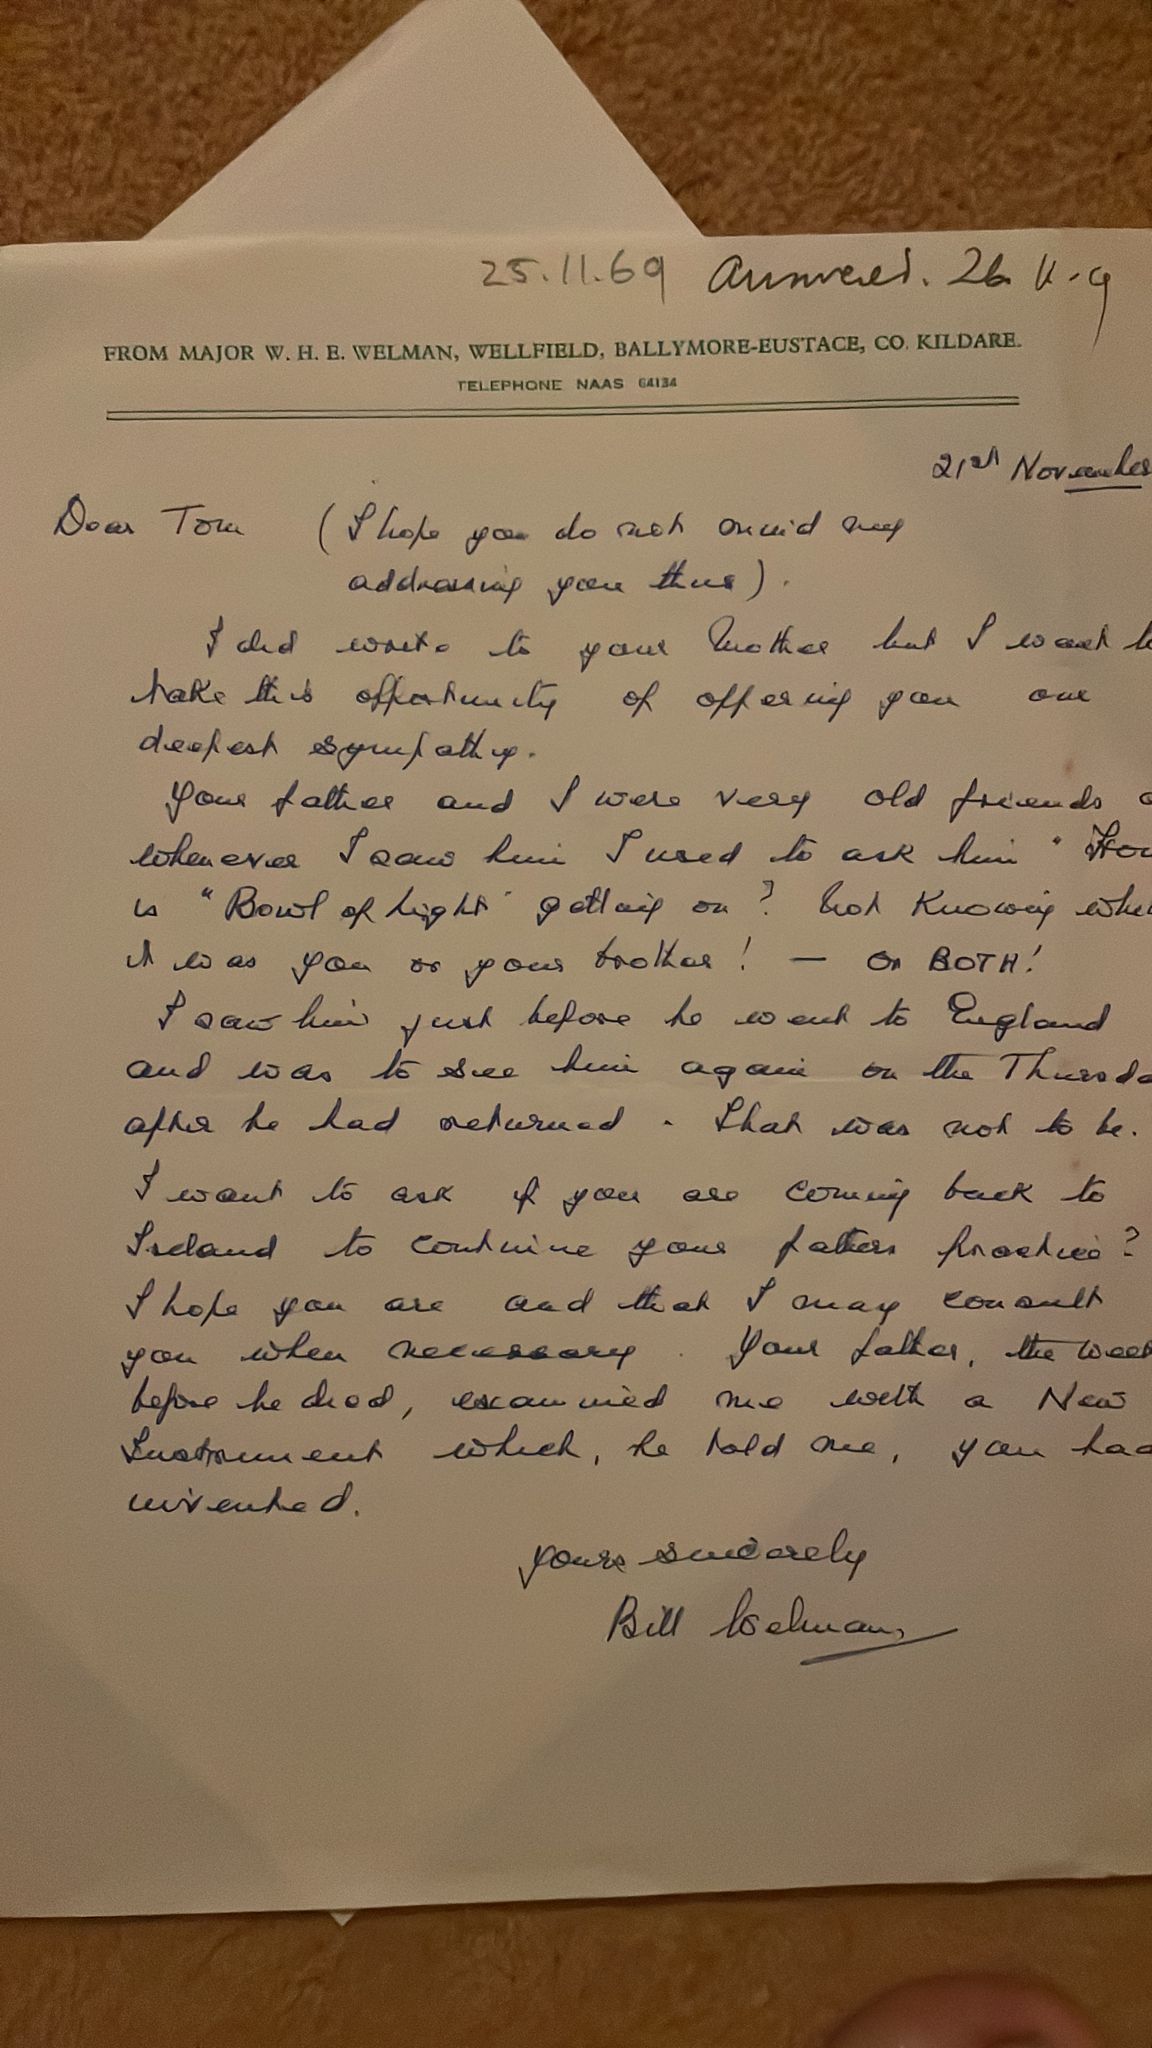 25.11.69 Answered. 26
FROM MAJOR W. H. E. WELMAN, WELLFIELD, BALLYMORE-EUSTACE, CO. KILDARE.
TELEPHONE NAAS 64134
21st November
Dear Tom (I hope you do not mind my
addressing you thus).
I did write to your Mother but I want to
take this opportunity of offering you our
deepest sympathy.
Your father and I were very old friends
whenever I saw him I used to ask him " How
is "Bowl of Light" getting on? Not Knowing whe
it was you or your brother! — OR BOTH!
I saw him just before he went to England
and was to see him again on the Thursda
after he had returned. That was not to be.
I want to ask if you are coming back to
Ireland to continue your fathers practice?
I hope you are and that I may consult
you when necessary. Your father, the week
before he died, examined me with a New
Instrument which, he told me, you had
invented.
Yours sincerely
Bill Welman